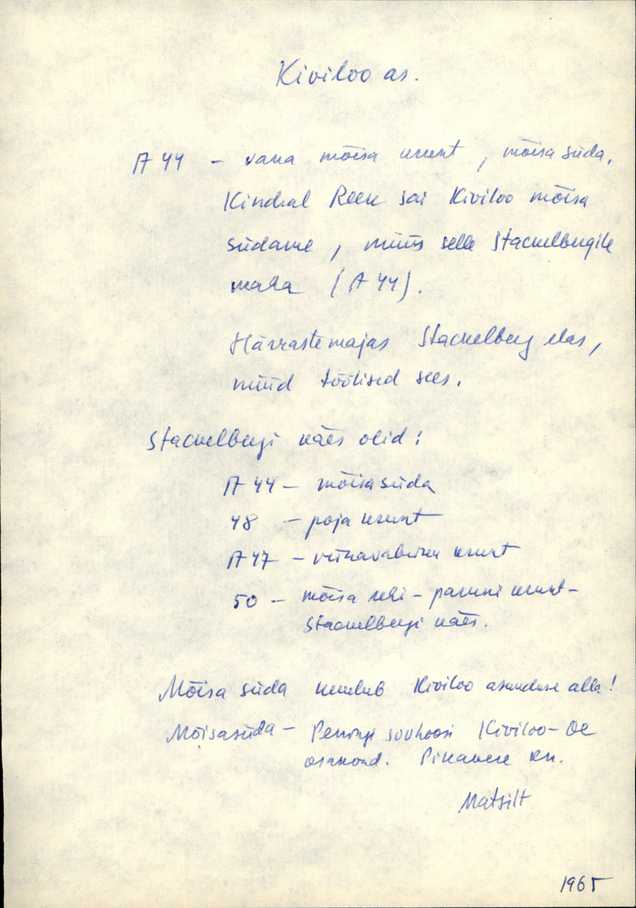 Kiviloo as.
A 44 – vana mõisa krunt, mõisa süda,
Kindral Reek sai Kiviloo mõisa
südame, müüs selle Stackelbergile
maha (A 44).
Härrastemajas Stackelberg elas,
nüüd töölised sees.
Stackelbergi käes olid:
A 44 – mõisasüda
48 – poja krunt
A 47 – viinavabriku krunt
50 – mõisa rehi – paruni krunt –
Stackelbergi käes.
Mõisa süda kuulub Kiviloo asunduse alla!
Mõisasüda – Peningi sovhoosi Kiviloo-
osakond. Pikavere kn.
Matsilt
1965